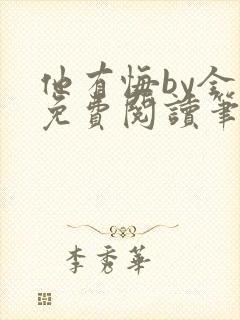 他有悔by金
免費閱讀筆
李秀華